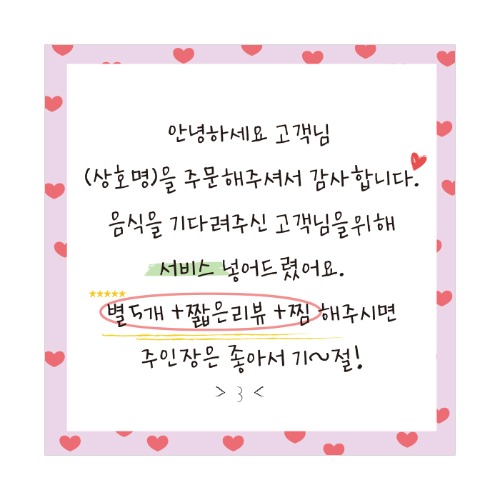 안녕하세요 고객님
(상호명)을 주문해주셔서 감사합니다.
음식을 기다려주신 고객님을위해
서비스 넣어드렸어요.
별5개 +짧은리뷰 +찜 해주시면
주인장은 좋아서 기~절!
> 3 <